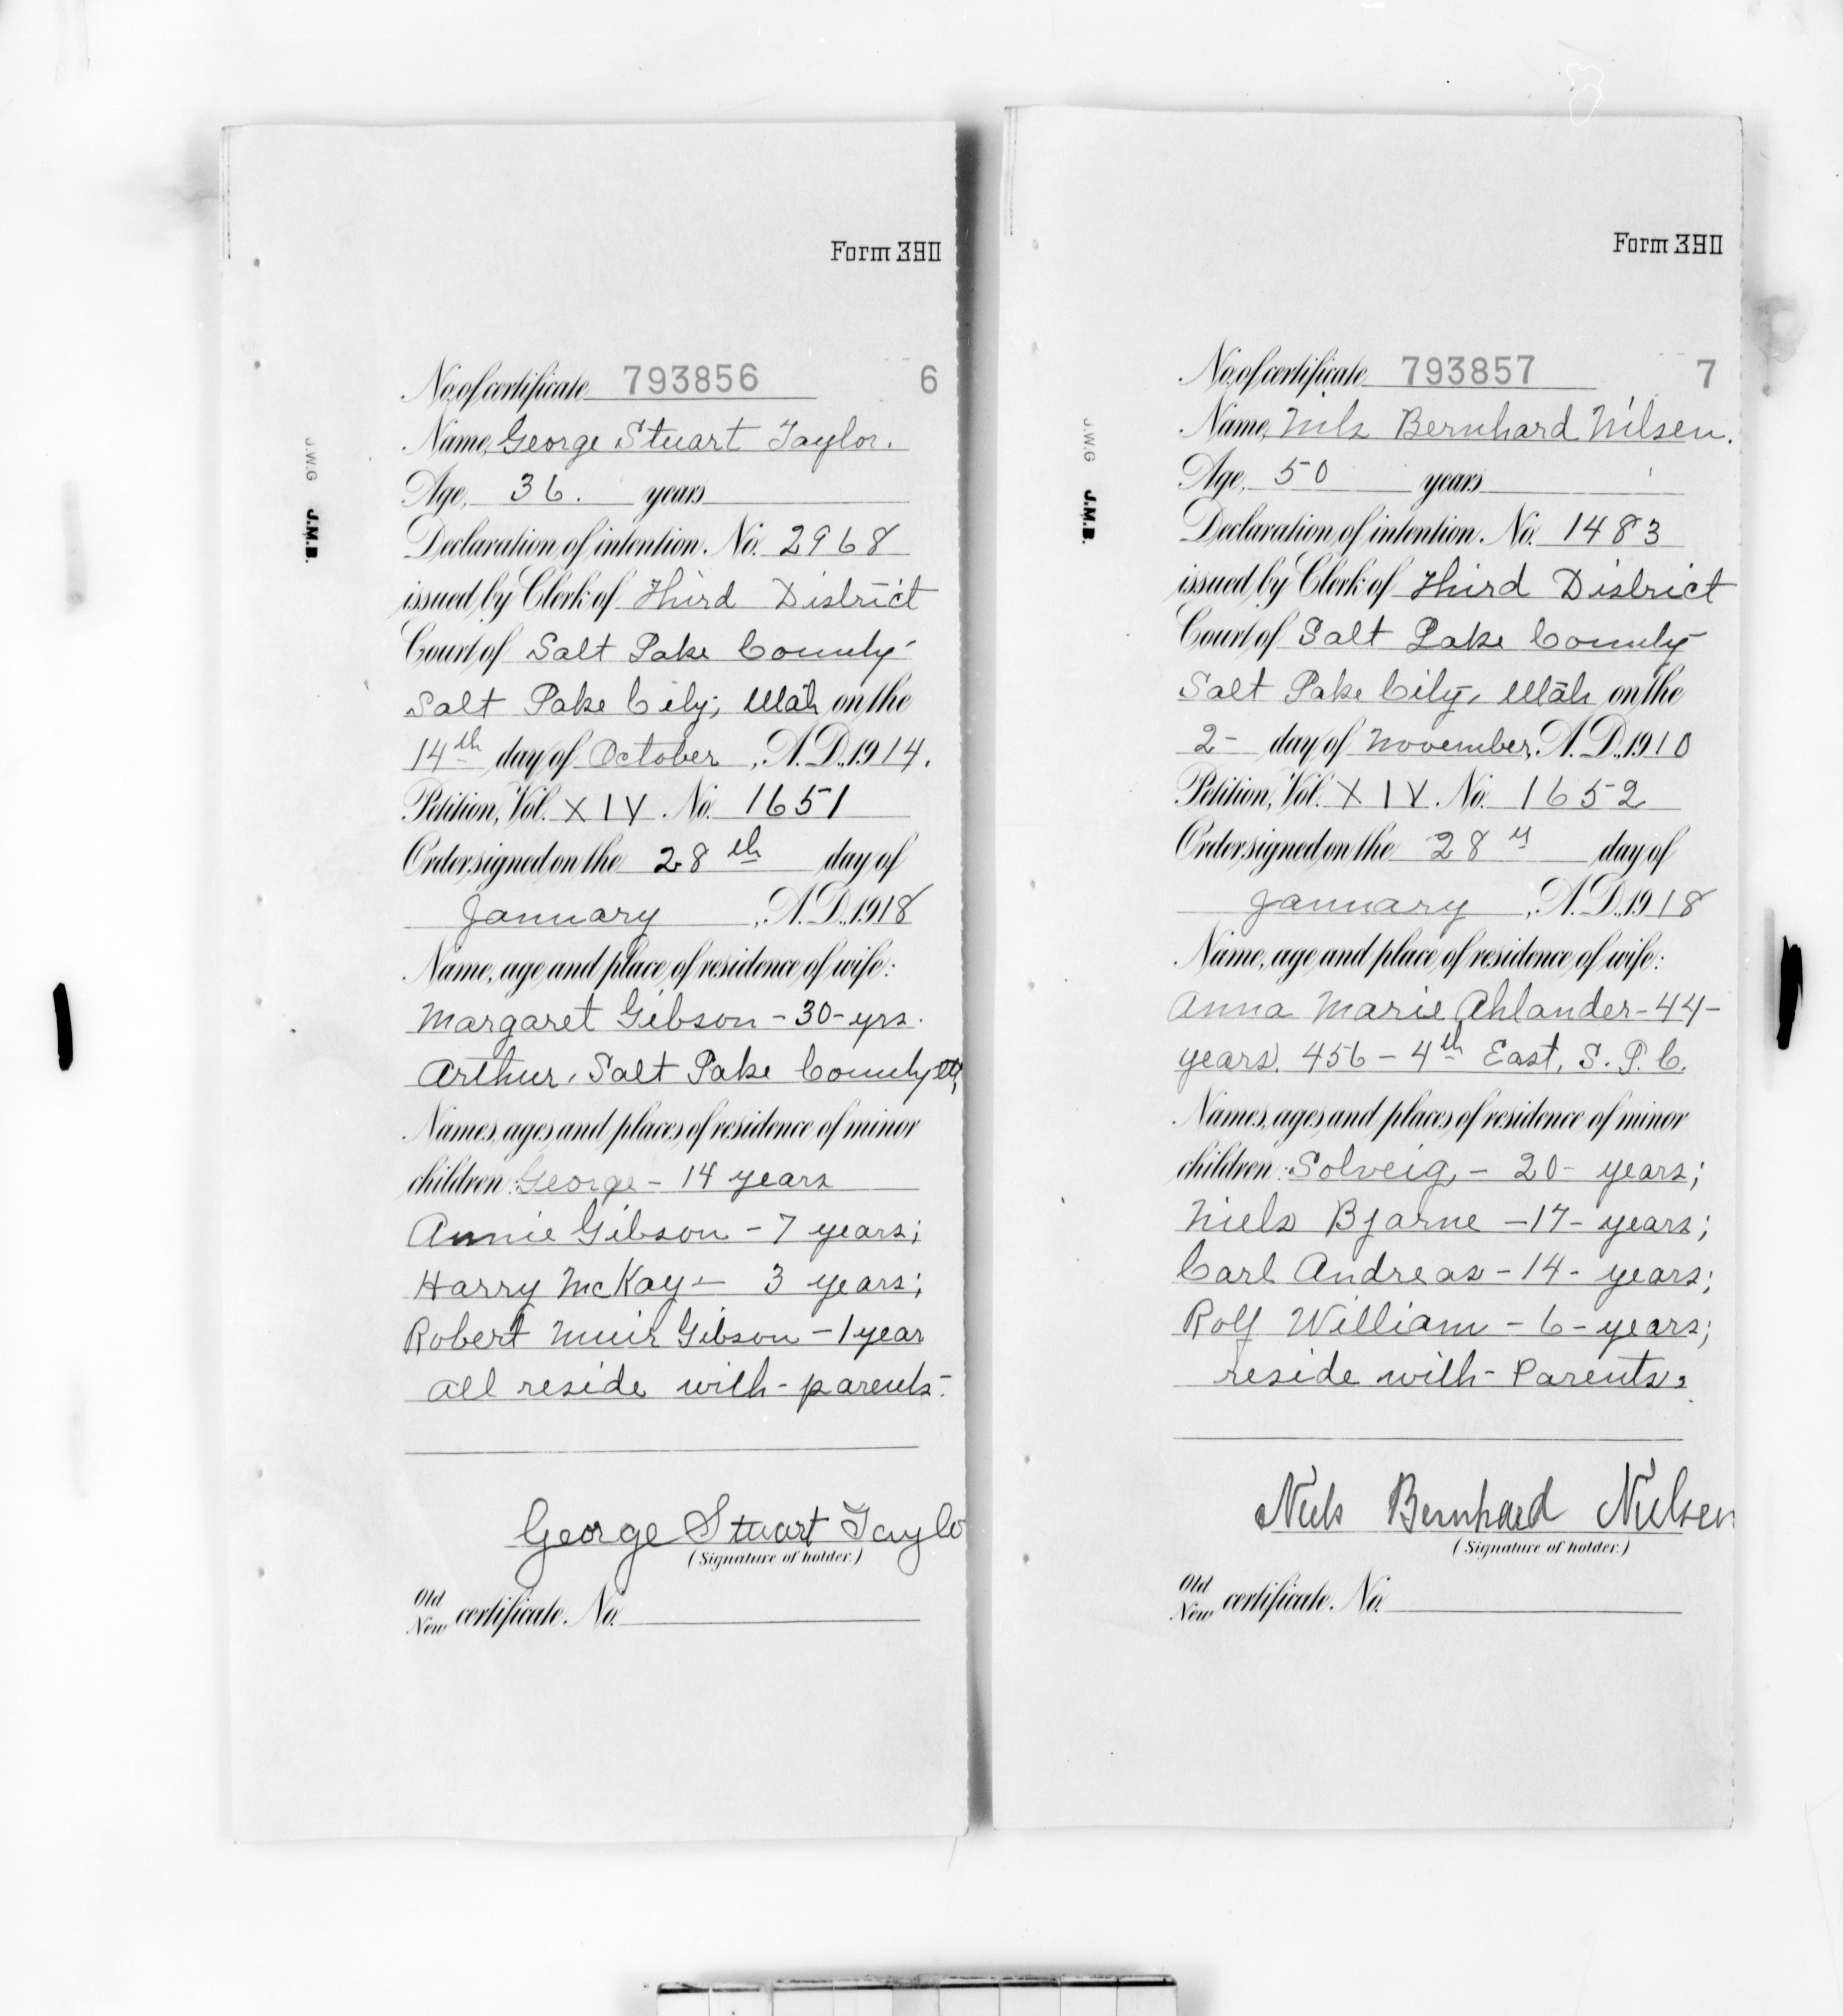 Form 390
No. of certificate 793856 6
Name, George Stuart Taylor.
Age, 36. years
Declaration of intention. No. 2968
issued by Clerk of Third District
Court of Salt Lake County
Salt Lake City, Utah on the
14th day of October, A.D. 1914.
Petition, Vol. XIV. No. 1651
Order signed on the 28th day of
January, A.D. 1918
Name, age and place of residence of wife:
Margaret Gibson - 30 - yrs.
Arthur, Salt Lake County
Names, ages and places of residence of minor
children: George - 14 years
Annie Gibson - 7 years;
Harry McKay - 3 years;
Robert Muir Gibson - 1 year
all reside with - parents.
George Stuart Taylo
(Signature of holder.)
Old
New certificate. No.
J.W.G J.M.B.
Form 390
No. of certificate 793857 7
Name, Nils Bernhard Nilsen.
Age, 50 years
Declaration of intention. No. 1483
issued by Clerk of Third District
Court of Salt Lake County
Salt Lake City, Utah on the
2- day of November, A.D. 1910
Petition, Vol. XIV. No. 1652
Order signed on the 28 day of
January, A.D. 1918
Name, age and place of residence of wife:
Anna Marie Ahlander - 44 -
years. 456 - 4th East, S. L. C.
Names, ages and places of residence of minor
children: Solveig, - 20 - years;
Niels Bjarne - 17 - years;
Carl Andreas - 14 - years;
Rolf William - 6 - years;
reside with - Parents.
Niels Bernhard Nielsen
(Signature of holder.)
Old
New certificate. No.
J.W.G J.M.B.